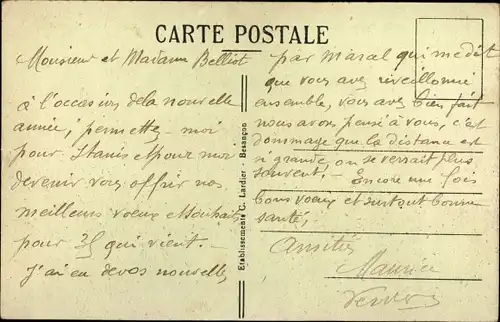 CARTE POSTALE
Monsieur et Madame Belliot
à l'occasion de la nouvelle
année, permettez-moi
pour Stanis et pour moi
de venir vous offrir nos
meilleurs voeux et souhaits
pour 35 qui vient.
J'ai eu de vos nouvelles
Etablissements C. Lardier - Besançon
par Marcel qui me dit
que vous avez réveillonné
ensemble, vous avez bien fait
nous avons pensé à vous, c'est
dommage que la distance est
si grande, on se verrait plus
souvent. Encore une fois
bons voeux et surtout bonne
santé,
Amitiés
Maurice